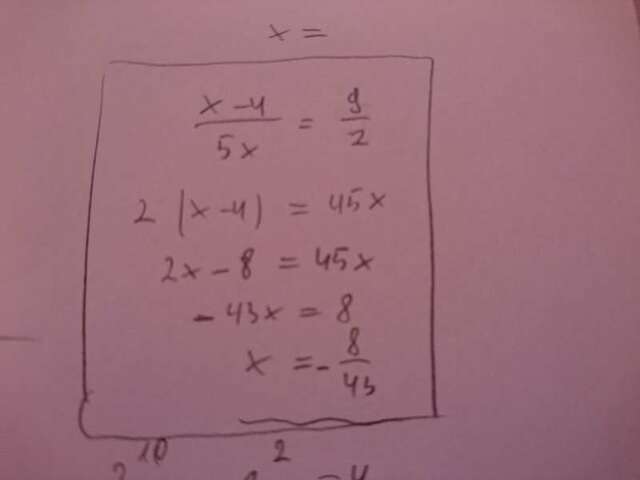 x =
x-4/5x = 9/2
2(x-4) = 45x
2x-8 = 45x
-43x = 8
x = -8/43
10 2